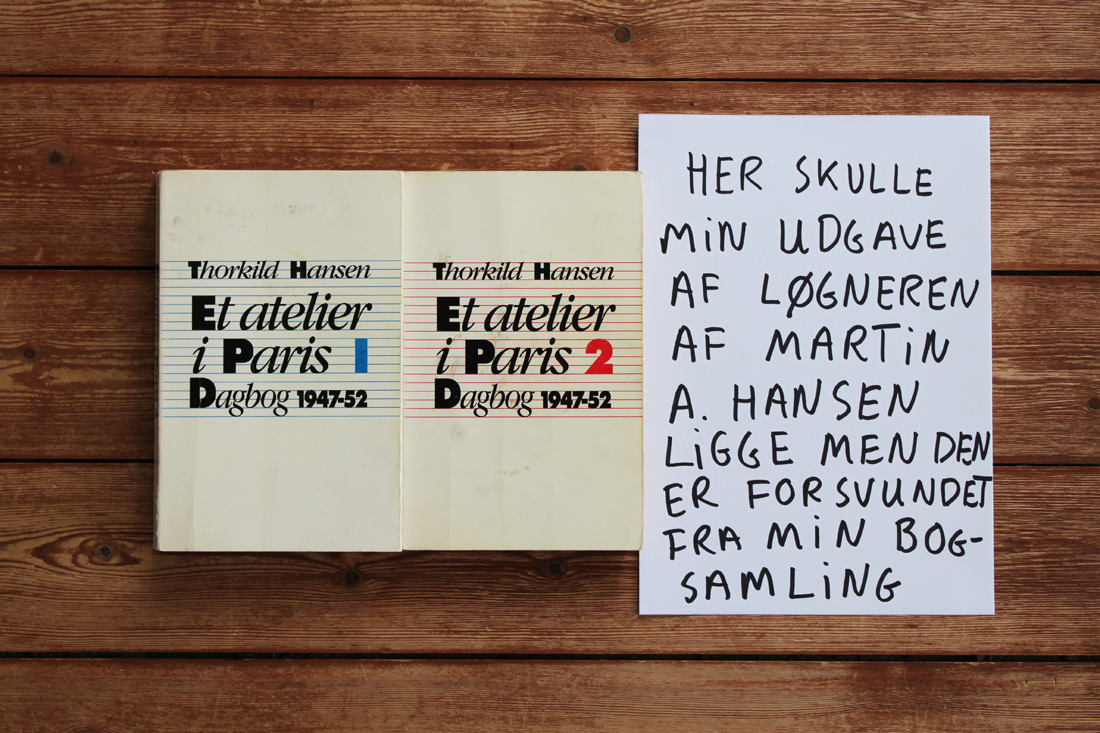 Thorkild Hansen
Et atelier
i Paris 1
Dagbog 1947-52
Thorkild Hansen
Et atelier
i Paris 2
Dagbog 1947-52
HER SKULLE
MiN UDGAVE
AF LØGNEREN
AF MARTiN
A. HANSEN
LiGGE MEN DEN
ER FORSVUNDET
FRA MiN BOG-
SAMLiNG